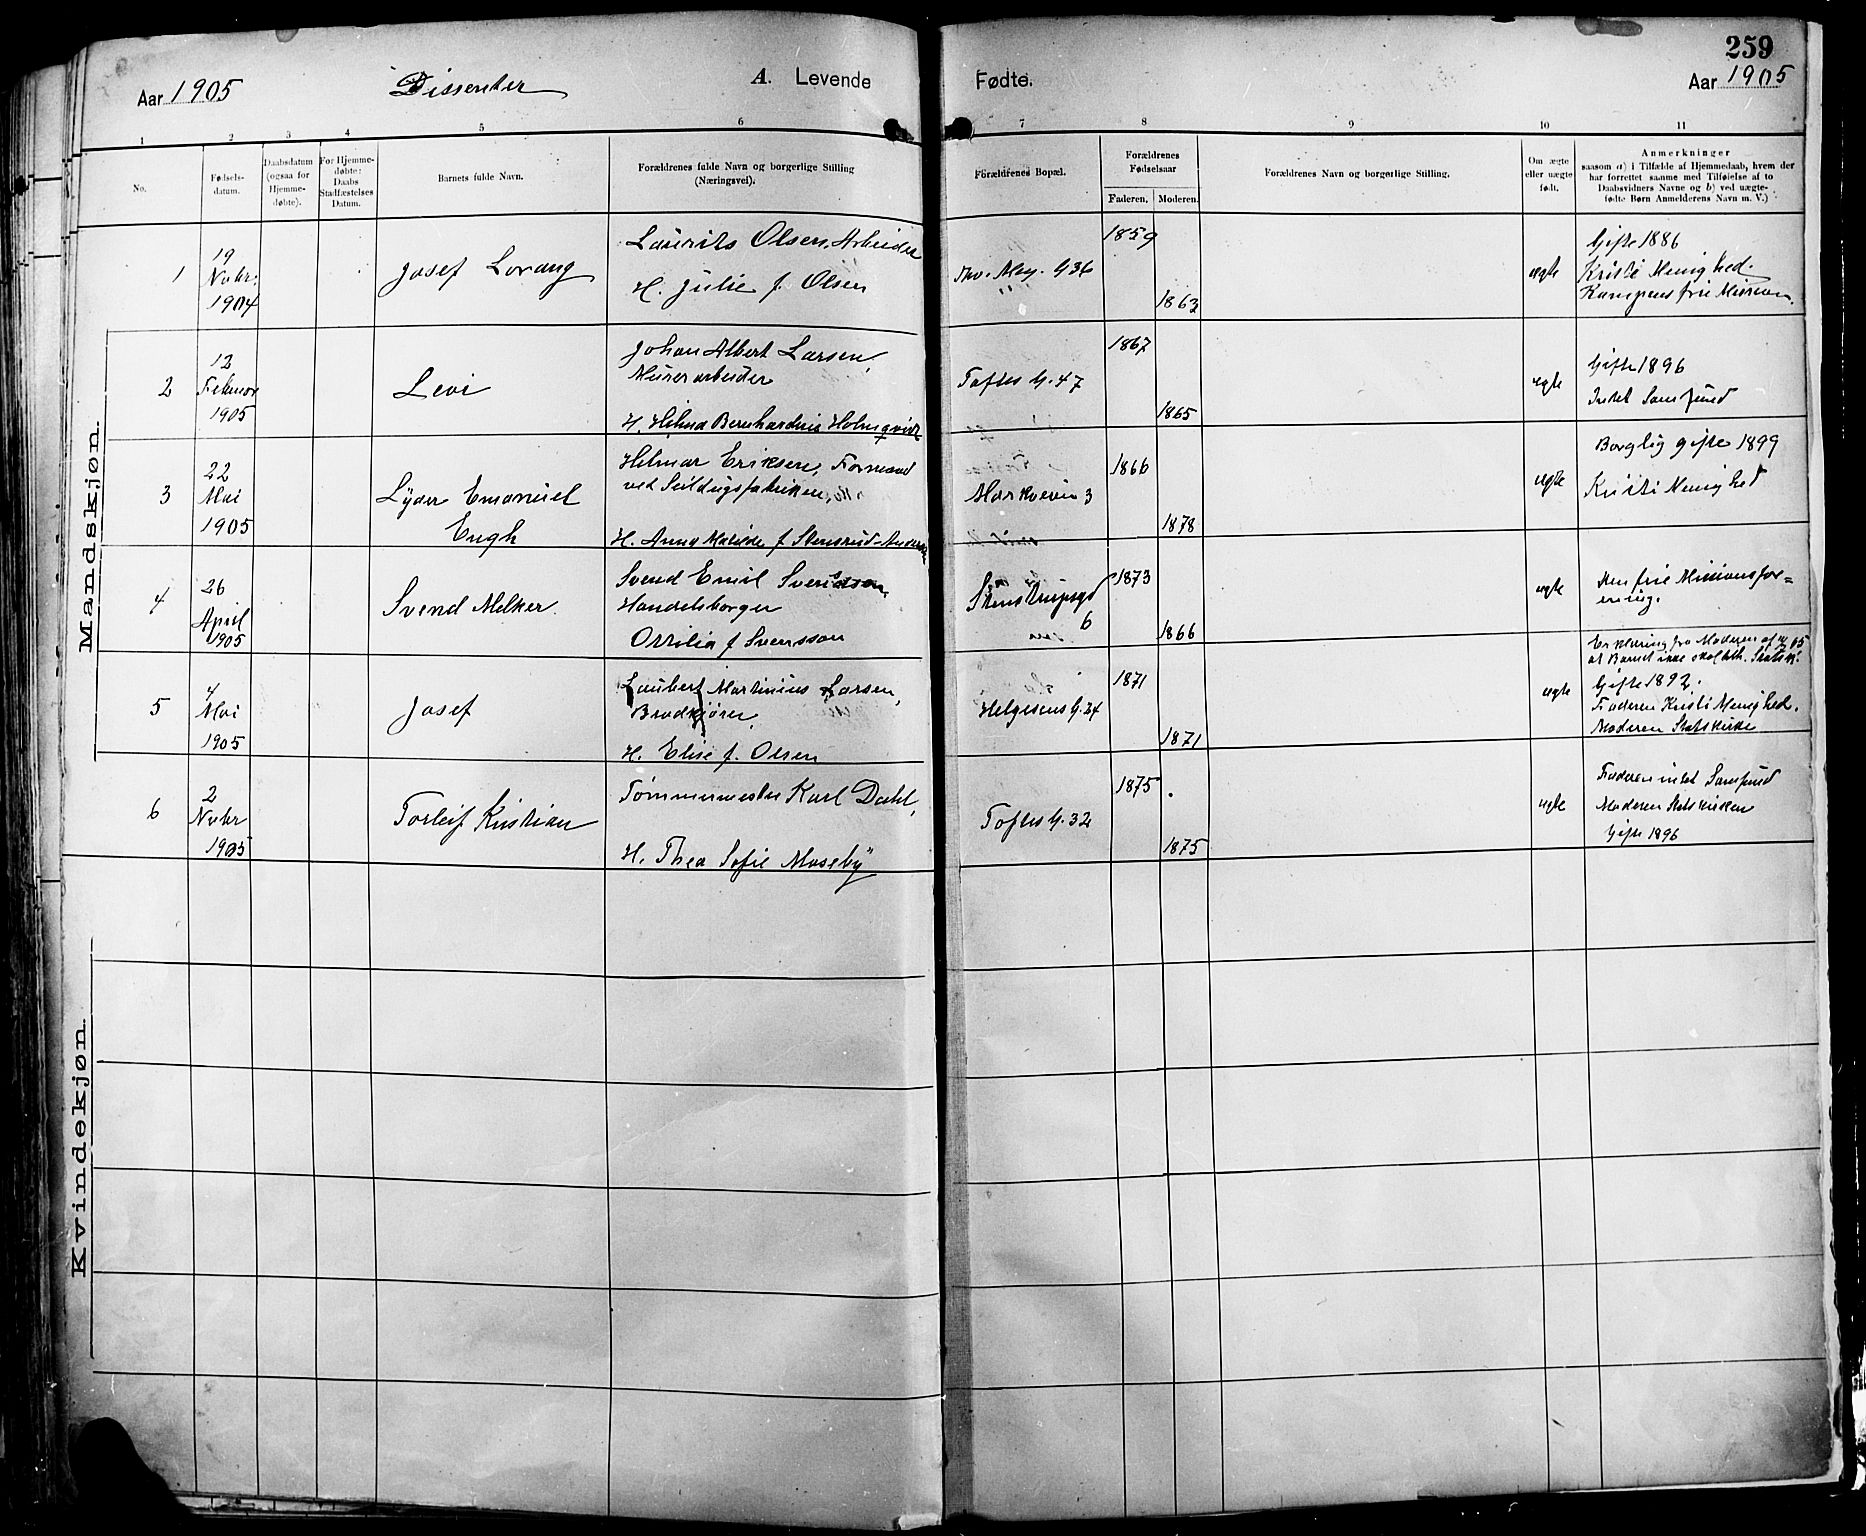 259
Aar 1905 Dissenter A. Levende Fødte. Aar 1905
1 2 3 4 5 6 7 8 9 10 11
No.
Fødsels-
datum.
Daabsdatum
(ogsaa for
Hjemme-
døbte).
For Hjemme-
døbte:
Daabs
Stadfæstelses
Datum.
Barnets fulde Navn.
Forældrenes fulde Navn og borgerlige Stilling
(Næringsvei).
Forældrenes Bopæl.
Forældrenes
Fødselsaar
Faderen. Moderen.
Forældrenes Navn og borgerlige Stilling.
Om ægte
eller uægte
født.
Anmerkninger
saasom a) i Tilfælde af Hjemmedaab, hvem der
har forrettet samme med Tilføielse af to
Daabsvidners Navne og b) ved uægte-
fødte Børn Anmelderens Navn m. V.)
Mandskjøn.
1
19
Nvbr.
1904
Josef Lorang
Laurits Olsen, Arbeider
H. Julie f. Olsen
Thv. Mey. G 36
1859
1863
ægte
Gifte 1886
Kristi Menighed.
Kampens frie Mission.
2
12
Februar
1905
Levi
Johan Albert Larsen,
Murerarbeider
H. Hilma Bernhardine Holmqvist
Toftes G. 47
1867
1865
ægte
Gifte 1896
Intet Samfund
3
22
Mai
1905
Lyder Emanuel
Engh
Hilmar Eriksen, Formand
ved Seildugsfabriken
H. Anna Matilde f. Stensrud-Anders
Markveien 3
1866
1878
ægte
Borglig gifte 1899
Kristi Menighed
4
26
April
1905
Svend Melker
Svend Emil Svensson,
Handelsborger
Ottilia f Svensson
Stenstrupsgd
6
1873
1866
ægte
Den frie Missionsfor=
ening.
5
4
Mai
1905
Josef
Laubert Martinius Larsen,
Brødkjører,
H. Elise f. Olsen
Helgesens G. 24
1871
1871
ægte
Erklæring fra Moderen af 05
at Barnet ikke skal tilh. Statsk.
Gifte 1892.
Faderen Kristi Menighed.
Moderen Statskirke
6
2
Nvbr
1905
Torleif Kristian
Tømmermester Karl Dahl,
H. Thea Sofie Moseby
Toftes G. 32
1875
1875
ægte
Faderen intet Samfund
Moderen Statskirken
Gifte 1896
Kvindekjøn.